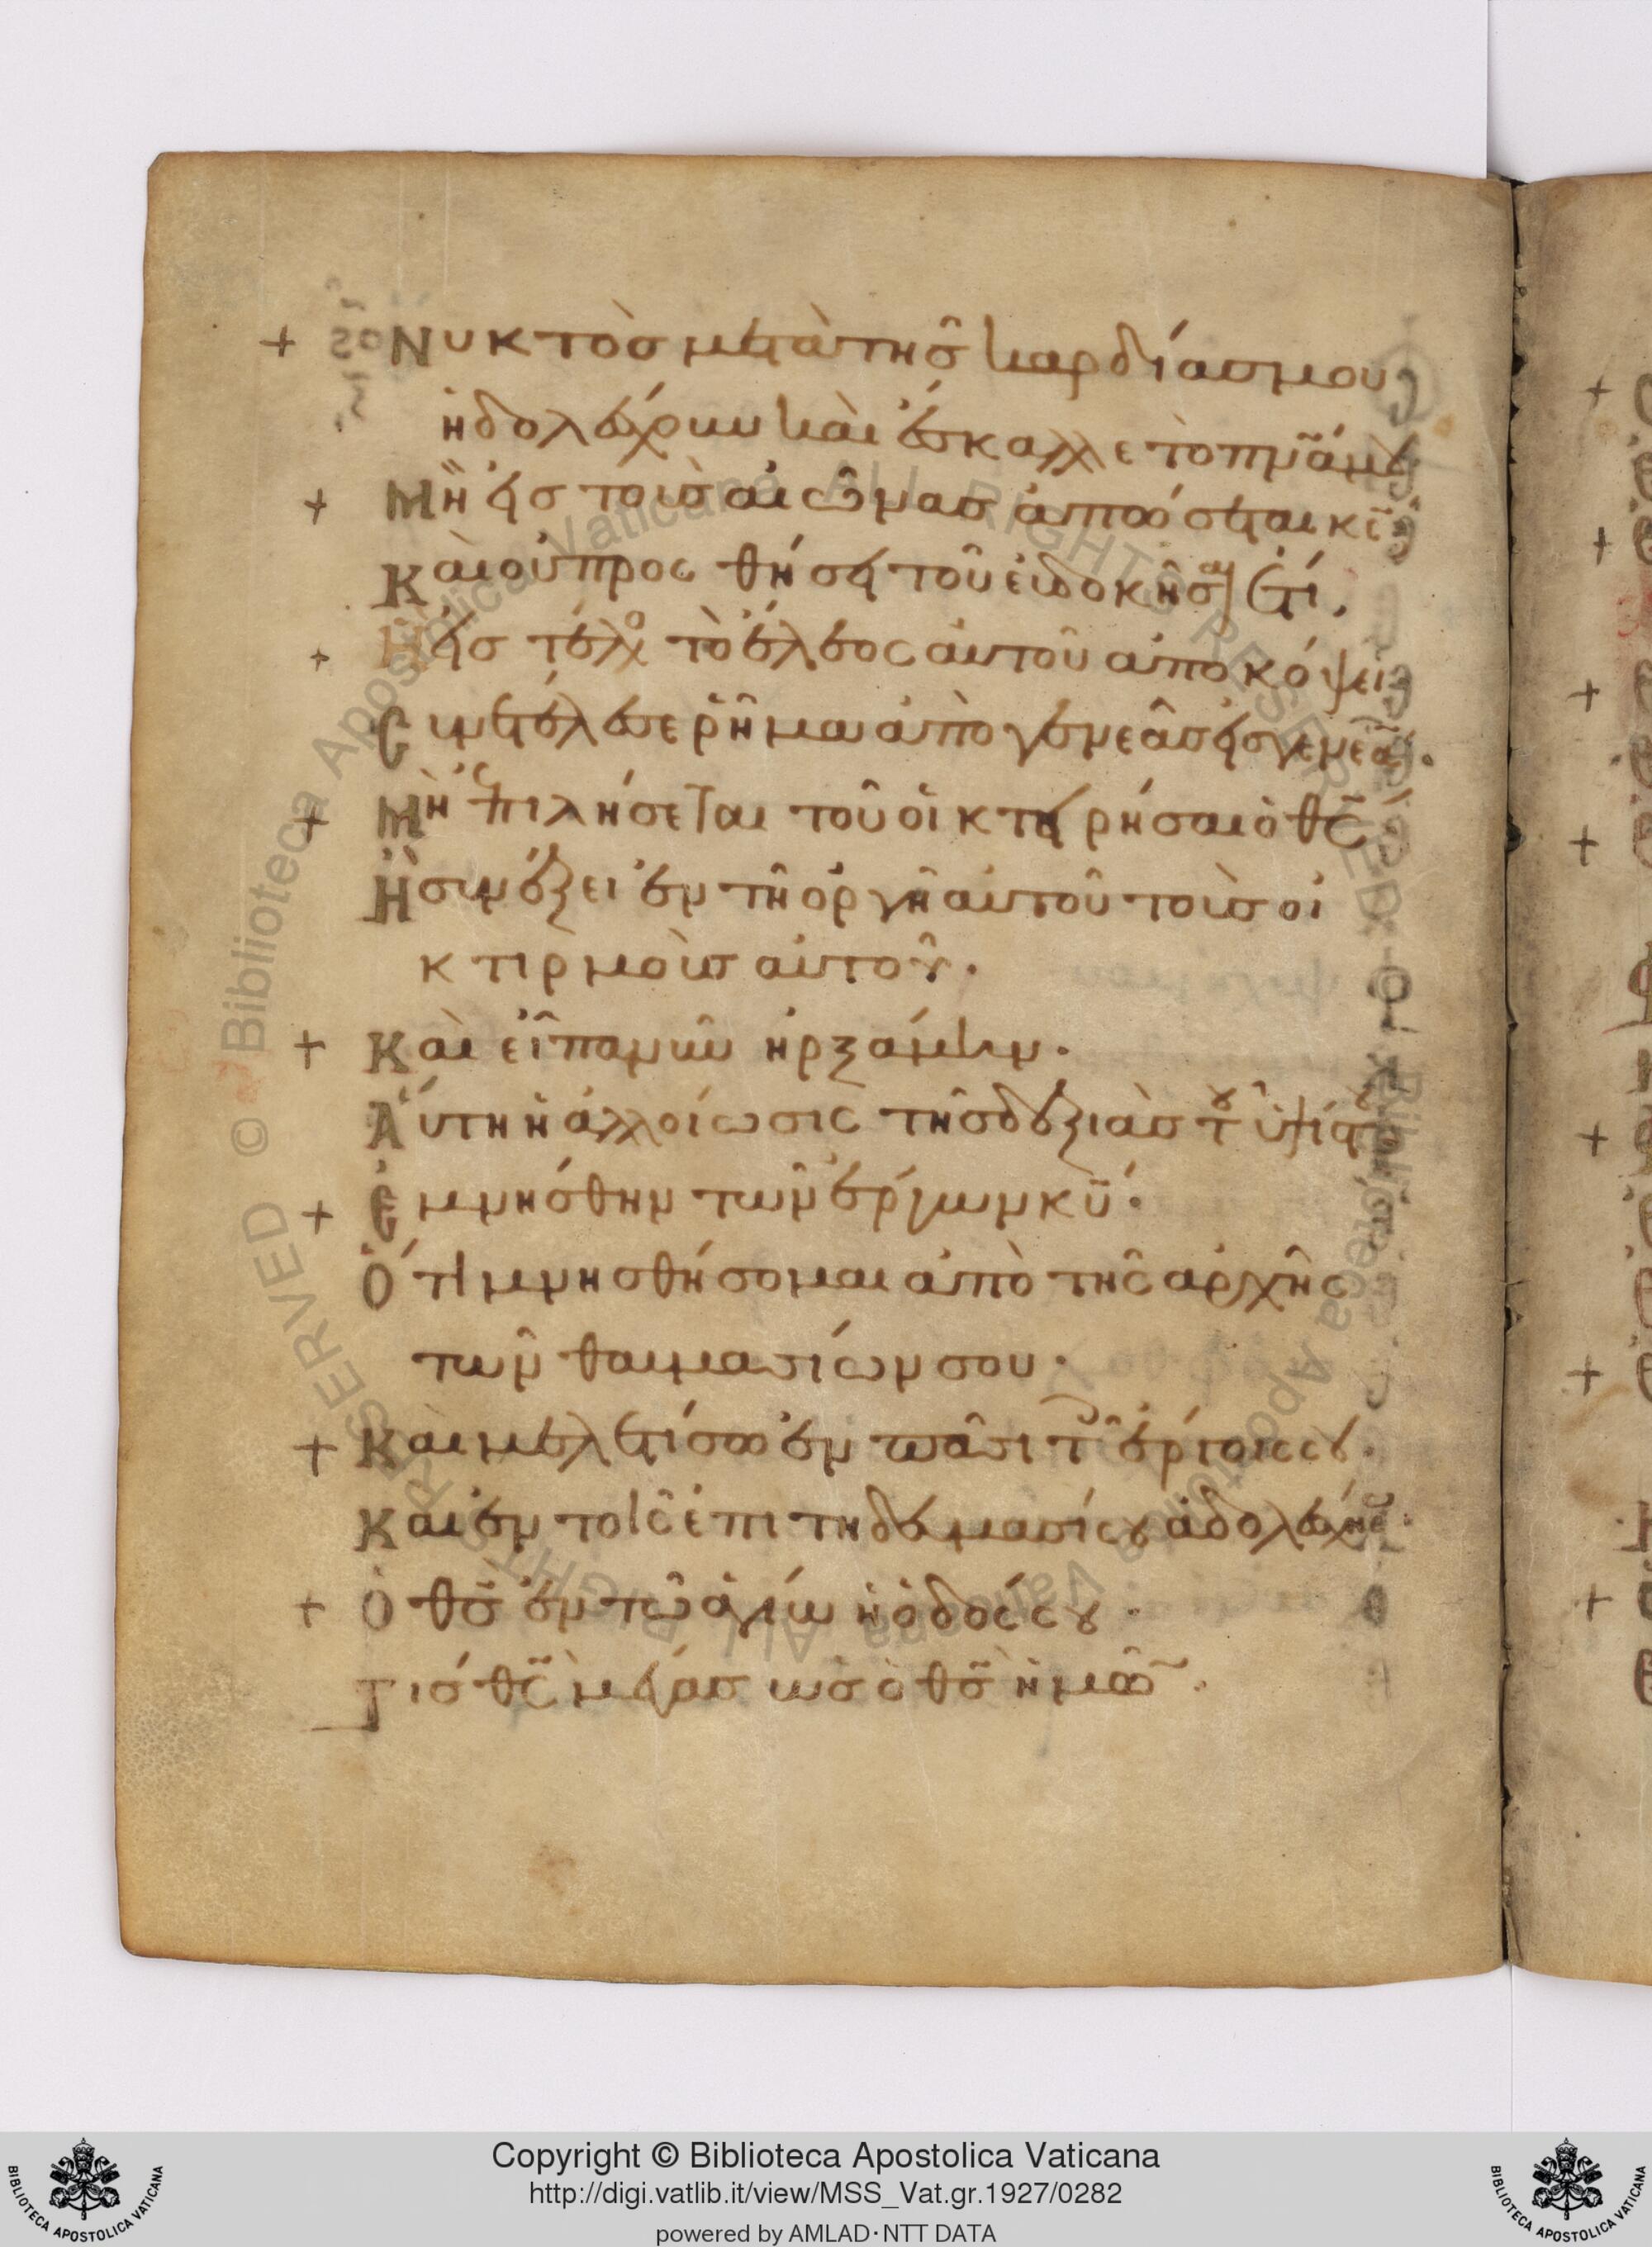 + Νυκτὸσ μετὰ τῆσ καρδίασ μου
ἠδολέσχουν καὶ ἔσκαλλε τὸ πνᾶ μου
+ Μὴ εἰσ τοὺσ αἰῶνασ ἀπώσεται κσ̄
Καὶ οὐ προσθήσει τοῦ εὐδοκῆσαι ἔτι.
+ Ἢ εἰσ τέλοσ τὸ ἔλεος αὐτοῦ ἀποκόψει
Συνετέλεσε ῥῆμα ἀπὸ γενεᾶσ εἰσ γενεάν.
+ Μὴ ἐπιλήσεται τοῦ οἰκτειρήσαι ὁ θς̄
Ἢ συνέξει ἐν τῆ ὀργῆ αὐτοῦ τοὺσ οἰ
κτιρμοὺσ αὐτοῦ.
+ Καὶ εἶπα νῦν ἠρξάμην.
Αὕτη ἡ ἀλλοίωσις τῆσ δεξιὰσ τοῦ ὑψίστου
+ Ἐμνήσθην τῶν ἔργων κῡ.
Ὅτι μνησθήσομαι ἀπὸ τῆς ἀρχῆς
τῶν θαυμασίων σου.
+ Και μελετίσω ἐν πᾶσι τοῖς ἔργοις σου.
Και ἐν τοῖς ἐπιτηδεύμασί σου ἀδολεσχήσω.
+ Ὁ θσ̄ ἐν τῶ ἁγίω ἡ ὁδός σου.
Τισ θς̄ μέγασ ὡσ ὁ θσ̄ ἡμῶν.
Copyright © Biblioteca Apostolica Vaticana
http://digi.vatlib.it/view/MSS_Vat.gr.1927/0282
powered by AMLAD·NTT DATA
BIBLIOTECA APOSTOLICA VATICANA
BIBLIOTECA APOSTOLICA VATICANA